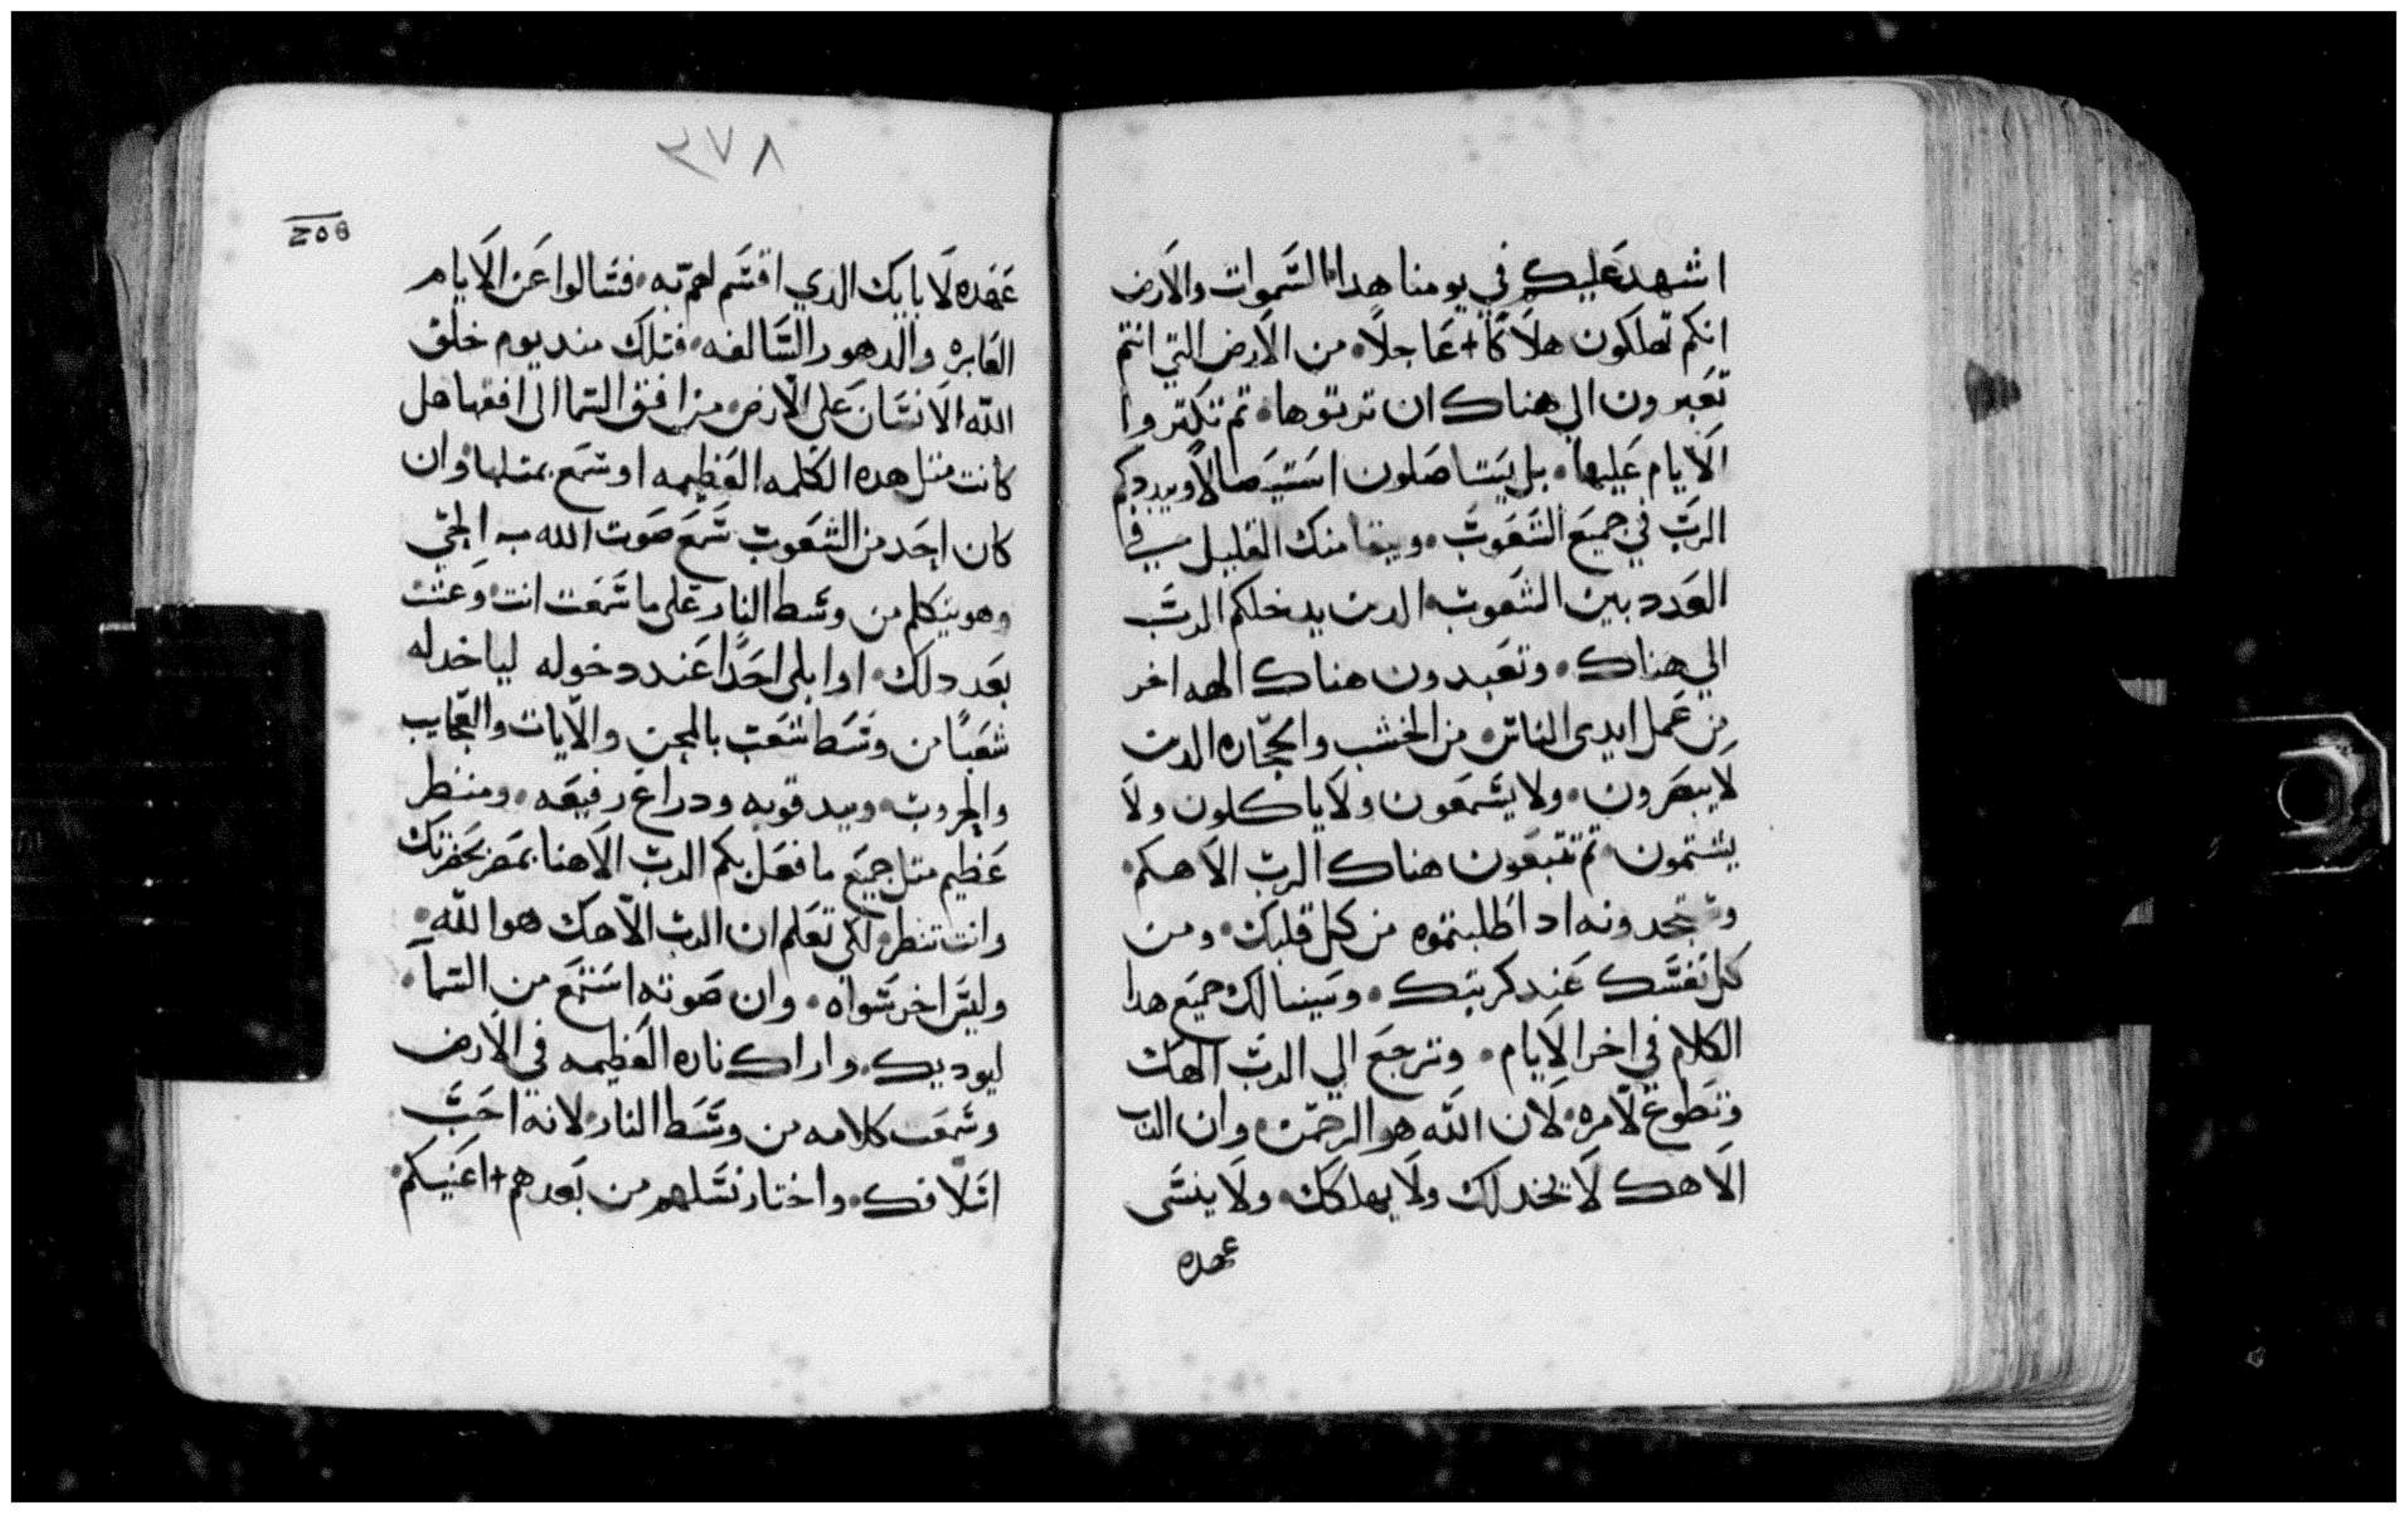 اشهد عليكم في يومنا هدا السموات والارض
انكم تهلكون هلاكا + عاجلا • من الارض التي انتم
تعبرون الي هناك ان ترتوها • تم تكتروا
الايام عليها • بل يستاصلون استيصالا ويبددكم
الرب في جميع الشعوب • ويبقا منك القليل في
العدد بين الشعوب الدين يدخلكم الرب
الي هناك • وتعبدون هناك الهه اخر
من عمل ايدي الناس من الخشب والحجاره الدين
لا يبصرون • ولا يسمعون ولا ياكلون ولا
يشتمون • تم تتبعون هناك الرب الاهكم •
وتجدونه ادا طلبتموه من كل قلبك • ومن
كل نفسك عند كربتك • وسينالك جميع هدا
الكلام في اخر الايام • وترجع الي الرب الهك
وتطوع لامره • لان الله هو الرحمن • وان الرب
الاهك لا يخدلك ولا يهلكك • ولا ينسى
عهده
٣٧٨
عهده لابايك الدي اقسم لهم به • فسالوا عن الايام
الغابره والدهور السالفه • فتلك مند يوم خلق
الله الانسان على الارض • من افق السما الى افقها هل
كانت متل هده الكلمه العظيمه او سمع بمتلها • وان
كان احد من الشعوب سمع صوت الله الحي
وهو يتكلم من وسط النار على ما سمعت انت • وعشت
بعد دلك • او ابلى احدا عند دخوله لياخد له
شعبا من وسط شعب بالمحن والايات والعجايب
والحروب • وبيد قويه ودراع رفيعه • ومنظر
عظيم متل جميع ما فعل بكم الرب الاهنا بمصر بحضرتك
وانت تنطر • لكي تعلم ان الرب الاهك هو الله •
وليس اخر سواه • وان صوته استمع من السما •
ليوديك • واراك ناره العظيمه في الارض
وسمعت كلامه من وسط النار • لانه احب
اسلافك • واختار نسلهم من بعدهم + اعنيكم •